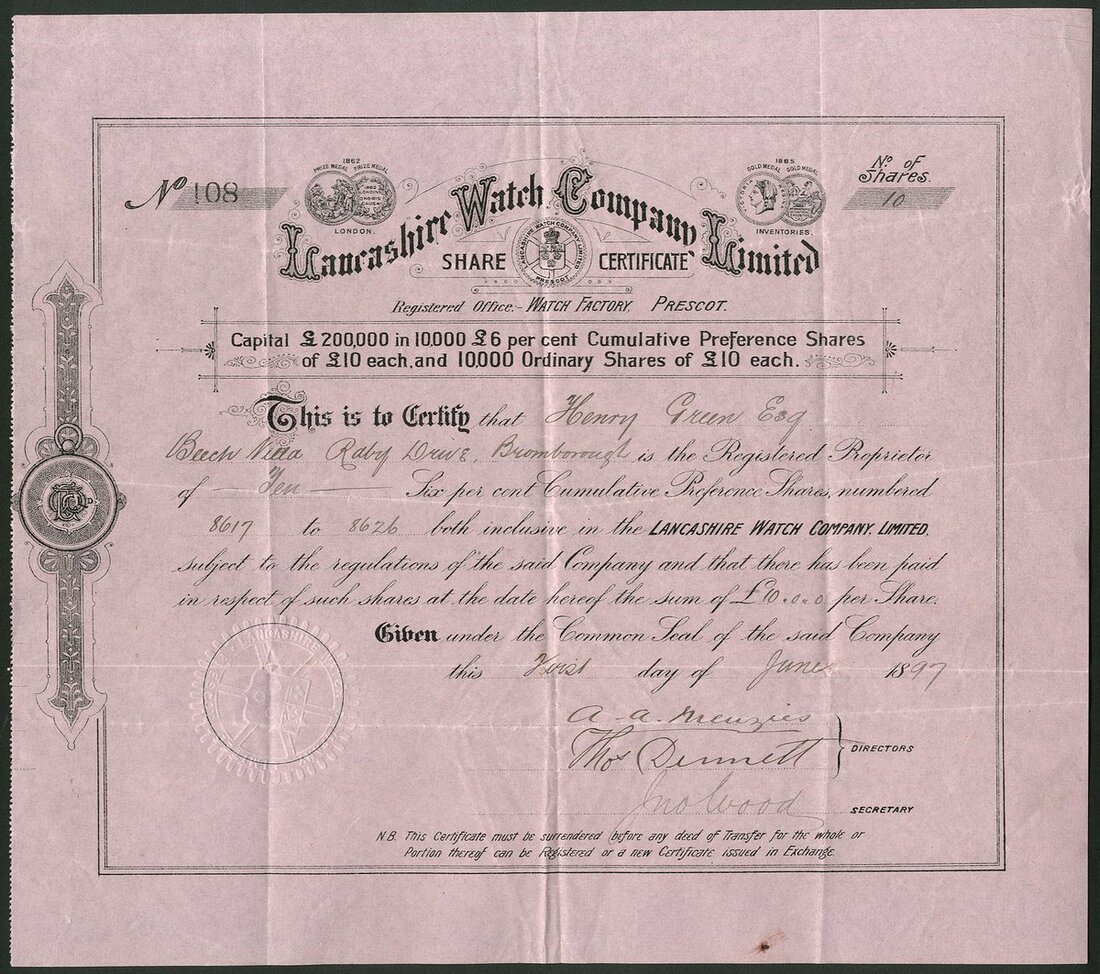 No 108
1862
PRIZE MEDAL PRIZE MEDAL
LONDON.
1885
GOLD MEDAL GOLD MEDAL
INVENTORIES,
No. OF
Shares
10
Lancashire Watch Company Limited
SHARE CERTIFICATE
LANCASHIRE WATCH COMPANY LIMITED
PRESCOT
Registered Office:- WATCH FACTORY. PRESCOT.
Capital £200,000 in 10,000 £6 per cent Cumulative Preference Shares
of £10 each, and 10,000 Ordinary Shares of £10 each.
This is to Certify that Henry Green Esq
Beech Villa Raby Drive, Bromborough is the Registered Proprietor
of Ten Six per cent Cumulative Preference Shares, numbered
8617 to 8626 both inclusive in the LANCASHIRE WATCH COMPANY, LIMITED,
subject to the regulations of the said Company and that there has been paid
in respect of such shares at the date hereof the sum of £10.0.0 per Share.
Given under the Common Seal of the said Company
this First day of June 1897
LANCASHIRE
A. A. Menzies
Thos Dennett
DIRECTORS
Jno Wood
SECRETARY
N.B. This Certificate must be surrendered before any deed of Transfer for the whole or
Portion thereof can be Registered or a new Certificate issued in Exchange.